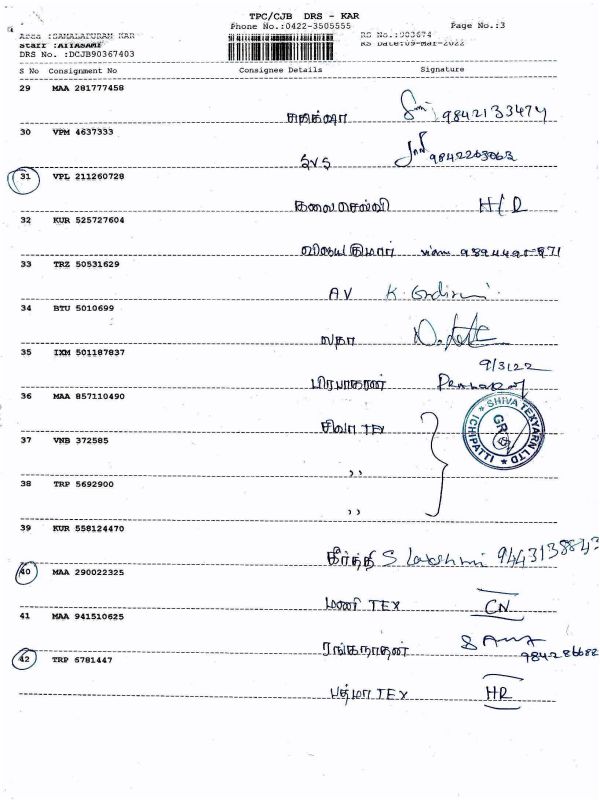 TPC/CJB DRS - KAR
Phone No.:0422-3505555 Page No.:3
Area :SAMALAPURAM KAR RS No.:903674
Staff :AIYASAMI RS Date:09-Mar-2022
DRS No. :DCJB90367403
S No Consignment No Consignee Details Signature
29 MAA 281777458
9842133474
30 VPM 4637333
SVS 9842263063
31 VPL 211260728
கலைசெல்வி H/D
32 KUR 525727604
விஜயகுமார்
33 TRZ 50531629
AV
34 BTU 5010699
லதா
35 IXM 501187837
9/3/22
பிரபாகரன்
36 MAA 857110490
சிவா TEX
SHIVA TEXYARN LTD
ICHIPATTI
37 VNB 372585
,,
38 TRP 5692900
,,
39 KUR 558124470
கீர்த்தி S Lakshmi 9443138843
40 MAA 290022325
மணி TEX CN
41 MAA 941510625
ரங்கநாதன்
42 TRP 6781447
பத்மா TEX HR